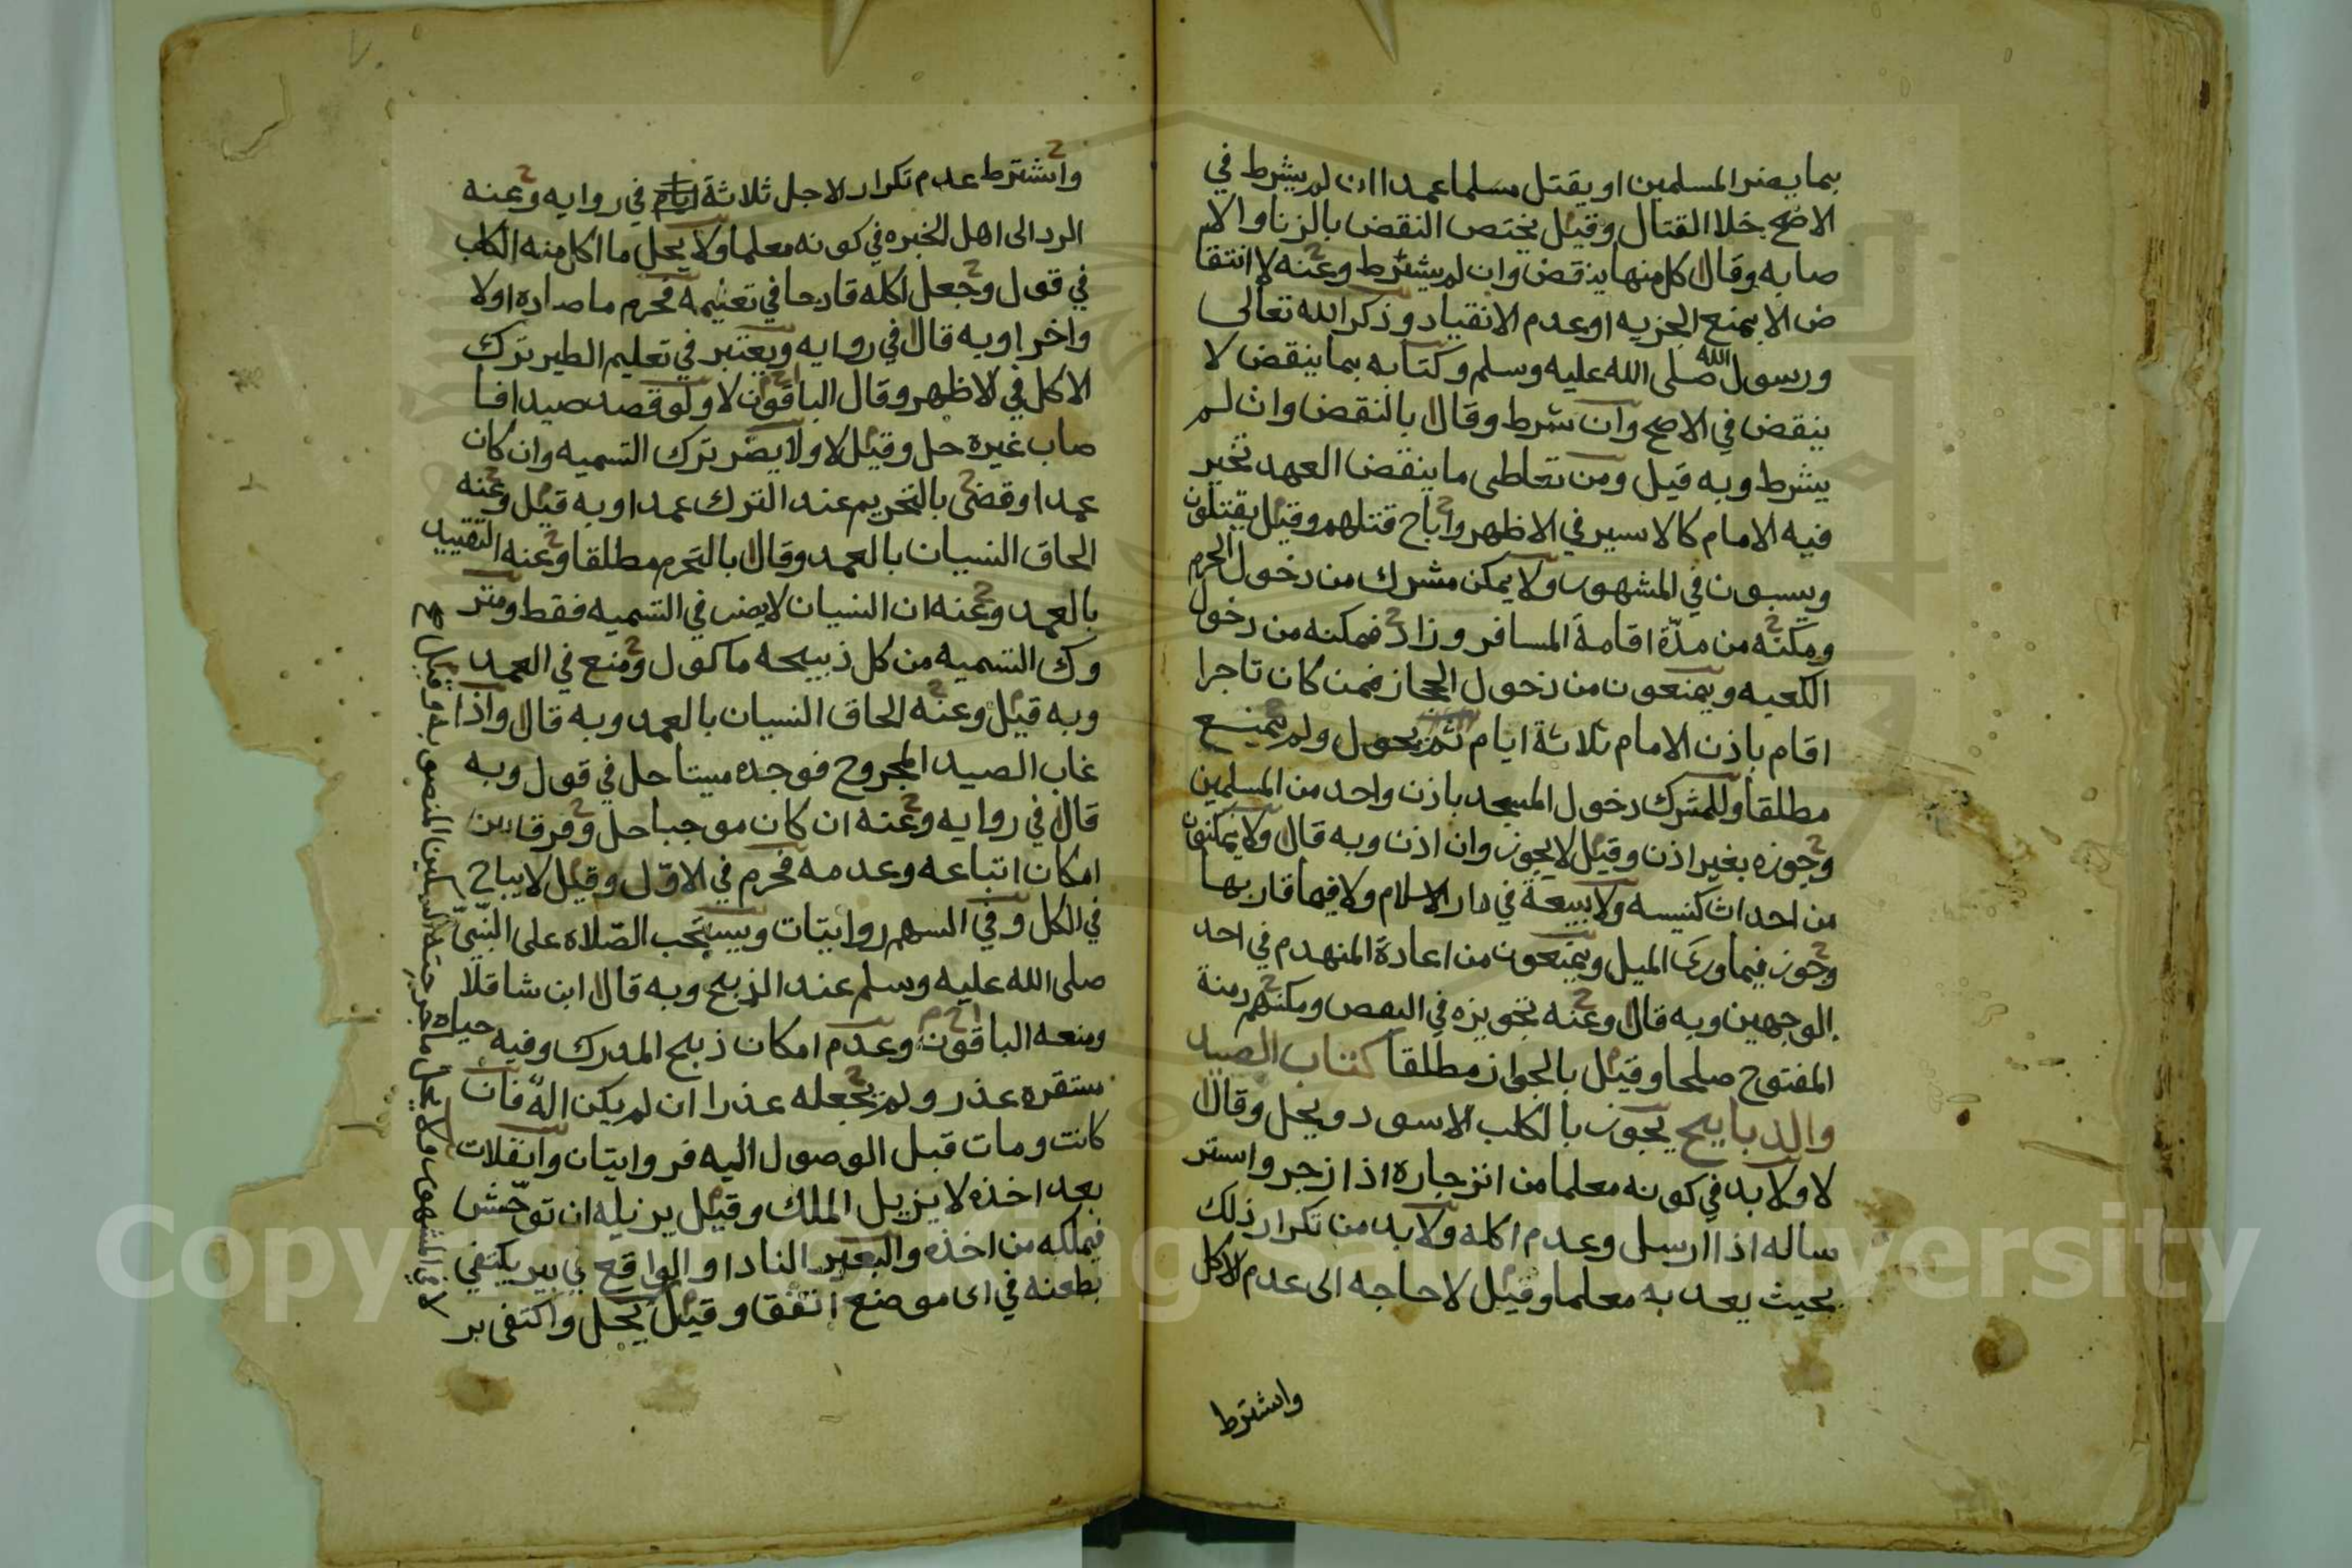 بما يضر المسلمين او يقتل مسلما عمدا ان لم يشرط في
الاصح خلا القتال وقيل يختص النقض بالزنا والا
صابه وقال كل منها ينقض وان لم يشترط وعنه لا انتقا
ض الا بمنع الجزيه او عدم الانقياد وذكر الله تعالى
ورسول الله صلى الله عليه وسلم وكتابه بما ينقض لا
ينقض في الاصح وان شرط وقال بالنقض وان لم
يشرط وبه قيل ومن تعاطى ما ينقض العهد تخير
فيه الامام كالاسير في الاظهر واباح قتلهم وقيل يقتلون
ويسبون في المشهور ولا يمكن مشرك من دخول الحرم
ومكنه من مدّة اقامة المسافر وزاد فمكنه من دخول
الكعبه ويمنعون من دخول الحجاز فمن كان تاجرا
اقام باذن الامام ثلاثة ايام ثم يحول ولم يمنع
مطلقا وللمشرك دخول المسجد باذن واحد من المسلمين
وجوزه بغير اذن وقيل لا يجوز وان اذن وبه قال ولا يمكنون
من احداث كنيسه ولا بيعة في دار الاسلام ولا فيما قاربها
وجوز فيما وراء الميل ويمنعون من اعادة المنهدم في احد
الوجهين وبه قال وعنه تجويزه في البعض ومكنهم رمنة
المفتوح صلحا وقيل بالجواز مطلقا كتاب الصيد
والذبايح يجوز بالكلب الاسود ويحل وقال
لا ولا بد في كونه معلما من انزجاره اذا زجر واستر
ساله اذا ارسل وعدم اكله ولا بد من تكرار ذلك
بحيث يعد به معلما وقيل لا حاجه الى عدم الاكل
واشترط
واشترط عدم تكرار لاجل ثلاثة ايام في روايه وعنه
الرد الى اهل الخبره في كونه معلما ولا يحل ما اكل منه الكلب
في قول وجعل اكله قادحا في تعليمه فحرم ما صاده اولا
واخرا وبه قال في روايه ويعتبر في تعليم الطير ترك
الاكل في الاظهر وقال الباقون لا ولو قصد صيدا فا
صاب غيره حل وقيل لا ولا يضر ترك التسميه وان كان
عمدا وقضى بالتحريم عند الترك عمدا وبه قيل وعنه
الحاق النسيان بالعمد وقال بالتحرم مطلقا وعنه التقييد
بالعمد وعنه ان النسيان لا يضر في التسميه فقط ومتر
وك التسميه من كل ذبيحه ماكول ومنع في العمد
وبه قيل وعنه الحاق النسيان بالعمد وبه قال واذا
غاب الصيد المجروح فوجده ميتا حل في قول وبه
قال في روايه وعنه ان كان موجبا حل وفرق بين
امكان اتباعه وعدمه فحرم في الاوّل وقيل لا يباح
في الكل وفي السهم روايتات ويستحب الصّلاه على النّبيّ
صلى الله عليه وسلم عند الذبح وبه قال ابن شاقلا
ومنعه الباقون وعدم امكان ذبح المدرك وفيه حياه
مستقره عذر ولم يجعله عذرا ان لم يكن اله فان
كانت ومات قبل الوصول اليه فروايتان وانفلات
بعد اخذه لا يزيل الملك وقيل يزيله ان توحّش
فيملكه من اخذه والبعير الناد او الواقع في بير يكتفي
بطعنه في اى موضع اتفق وقيل يحل واكتفى بر